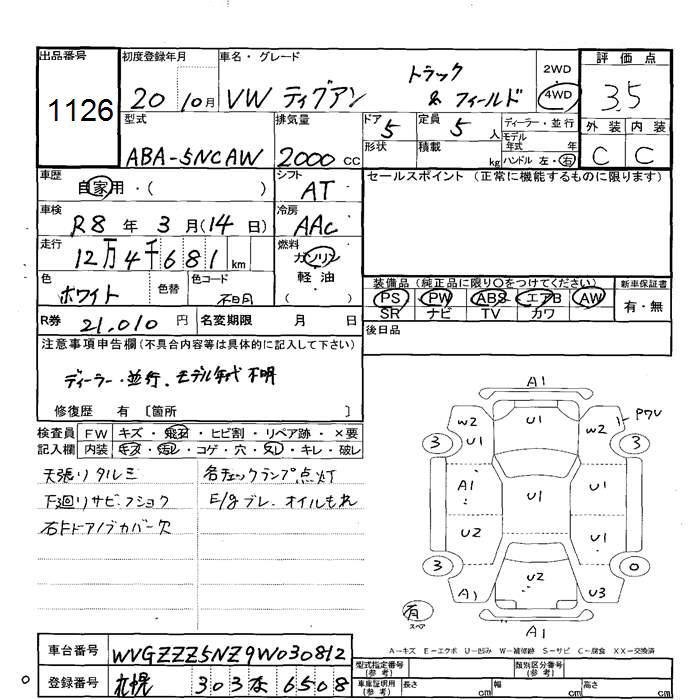 出品番号 初度登録年月 車名・グレード 評価点
1126 20 10月 VW ティグアン トラック & フィールド 2WD 4WD 3.5
型式 排気量 ドア 5 定員 5 人 ディーラー・並行 外装 内装
ABA-5NCAW 2000 CC 形状 積載 kg モデル年式 年 ハンドル 左・右 C C
車歴 自家用・( ) シフト AT セールスポイント (正常に機能するものに限ります)
車検 R8 年 3 月(14 日) 冷房 AAC
走行 12万4千681 km 燃料 ガソリン 軽油 ( )
色 ホワイト 色替 色コード 不明
装備品(純正品に限り○をつけてください) 新車保証書
PS PW ABS エアB AW 有・無
SR ナビ TV カワ
R券 21,010 円 名変期限 月 日 後日品
注意事項申告欄(不具合内容等は具体的に記入して下さい)
ディーラー・並行、モデル年代 不明
修復歴 有 〔箇所 〕
検査員 FW キズ・飛石・ヒビ割・リペア跡・×要
記入欄 内装 キズ・汚レ・コゲ・穴・スレ・キレ・破レ
天張りタルミ 各チェックランプ点灯
下廻りサビ・フショク E/gブレ、オイルもれ
右FドアノブカバーR欠
A1
W2 U1 W2 PフU
3 U1 U1 3
A1 U1 U1
U2 U1
3 U2 0
A1 U3
有 スペア A1
A-キズ E-エクボ U-凹み W-補修跡 S-サビ C-腐食 XX-交換済
車台番号 WVGZZZ5NZ9W030812 型式指定番号(参考) 類別区分番号(参考)
登録番号 札幌 303 な 6508 車庫証明用(参考) 長さ cm 幅 cm 高さ cm